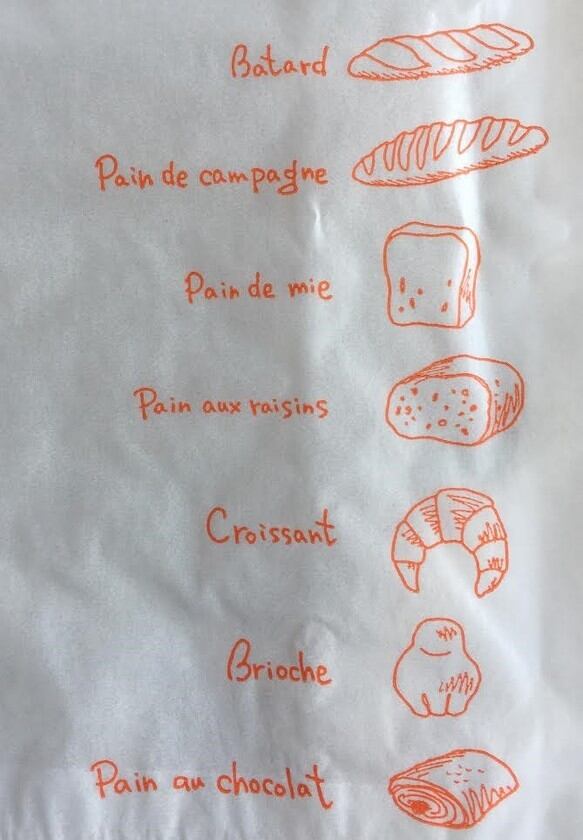 Batard
Pain de campagne
Pain de mie
Pain aux raisins
Croissant
Brioche
Pain au chocolat